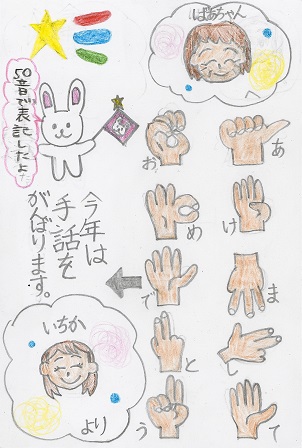 ばあちゃん
あ
け
ま
し
て
お
め
で
と
う
50音で表記したよ
今年は
手話を
がんばります。
いちか
より